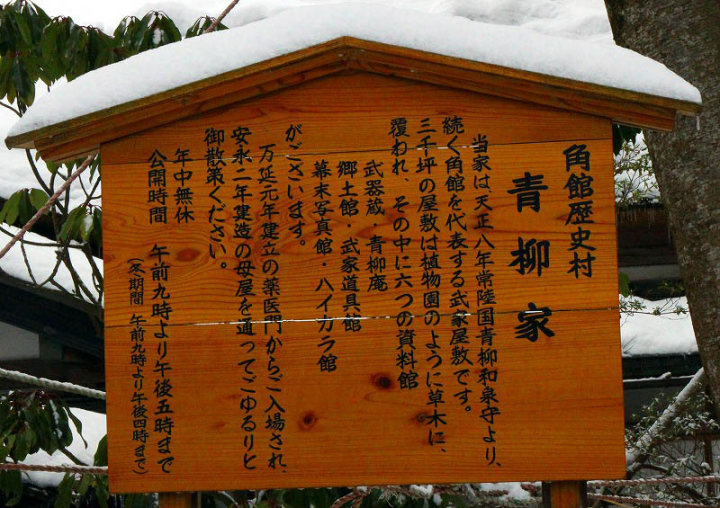 角館歴史村
青柳家
当家は、天正八年常陸国青柳和泉守より、
続く角館を代表する武家屋敷です。
三千坪の屋敷は植物園のように草木に、
覆われ、その中に六つの資料館
武器蔵・青柳庵
郷土館・武家道具館
幕末写真館・ハイカラ館
がございます。
万延元年建立の薬医門からご入場され、
安永二年建造の母屋を通ってごゆるりと
御散策ください。
年中無休
公開時間 午前九時より午後五時まで
(冬期間 午前九時より午後四時まで)